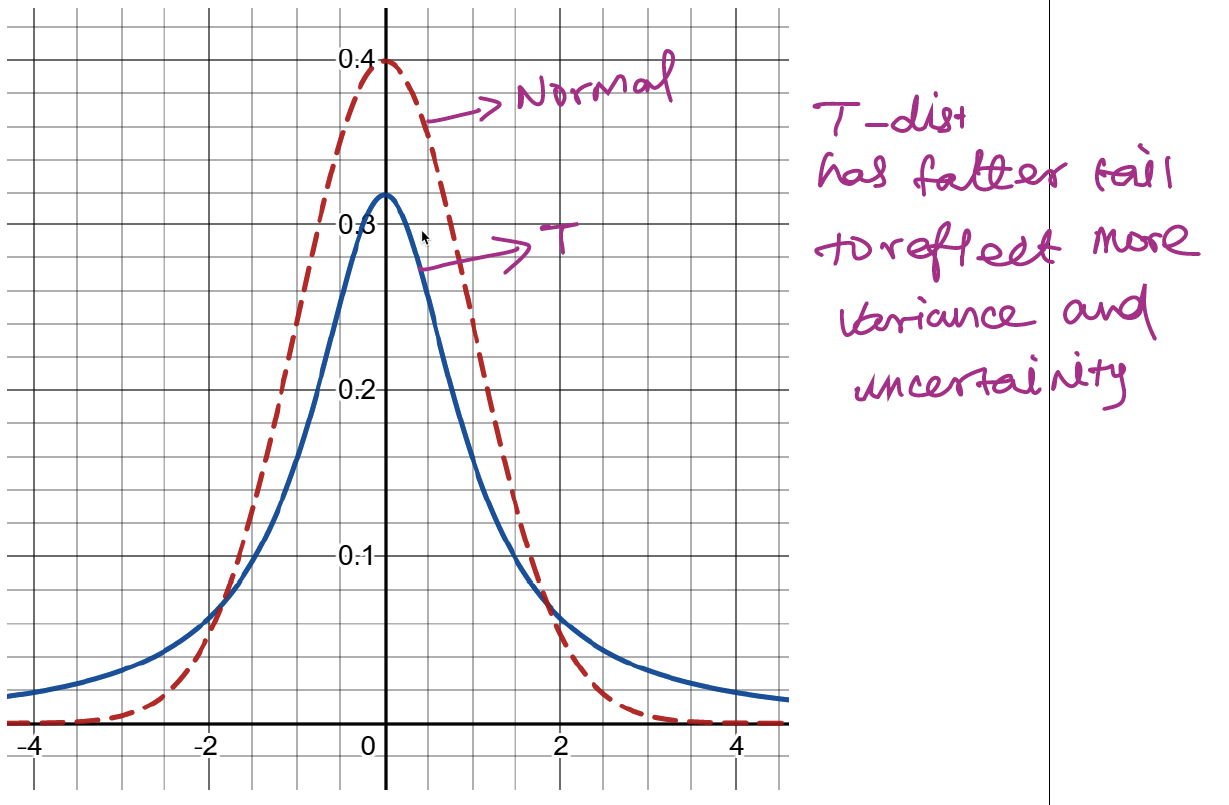 0.4
Normal
0.3
T
0.2
0.1
-4
-2
0
2
4
T-dist
has fatter tail
to reflect more
variance and
uncertainity